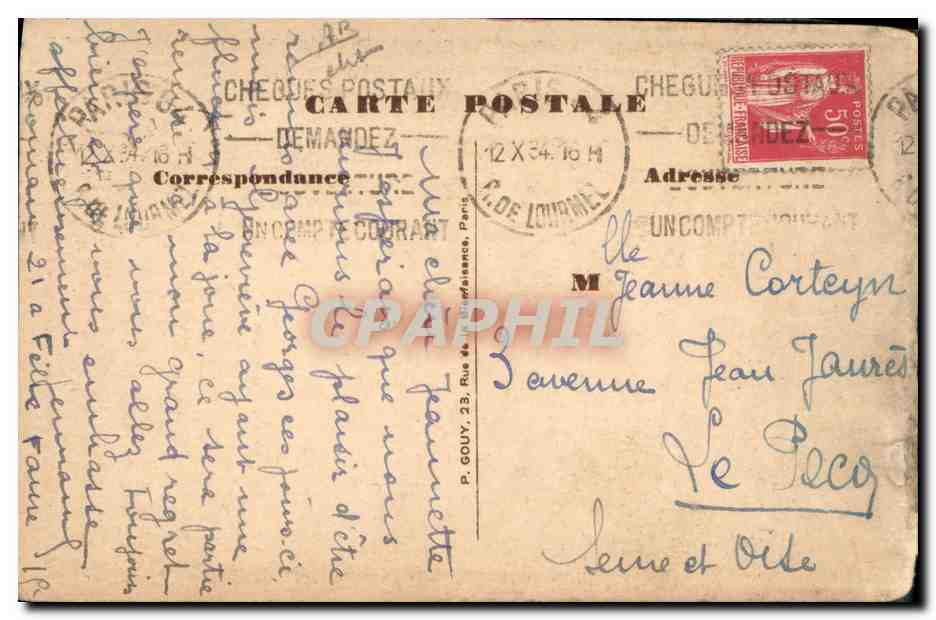 AR
CHEQUES POSTAUX
DEMANDEZ
OUVERTURE
UN COMPTE COURANT
PARIS
12 X 34. 16 H
R. DE LOURMEL
CARTE POSTALE
Correspondance
Adresse
CHEQUES POSTAUX
DEMANDEZ
OUVERTURE
UN COMPTE COURANT
PARIS
12 X 34. 16 H
R. DE LOURMEL
REPUBLIQUE FRANÇAISE
POSTES
50c
PAX
Ma chère Jeannette
J'espérais que nous
aurions le plaisir d'être
réunis avec Georges ces jours-ci,
mais Geneviève ayant une
fluxion à la joue, ce sera partie
remise à mon grand regret
J'espère que vous allez toujours
bien et vous embrasse
affectueusement
P. GOUY, 23, Rue de la Bienfaisance, Paris
M lle Jeanne Corteyn
3 avenue Jean Jaurès
Le Pecq
Seine et Oise
CPAPHIL